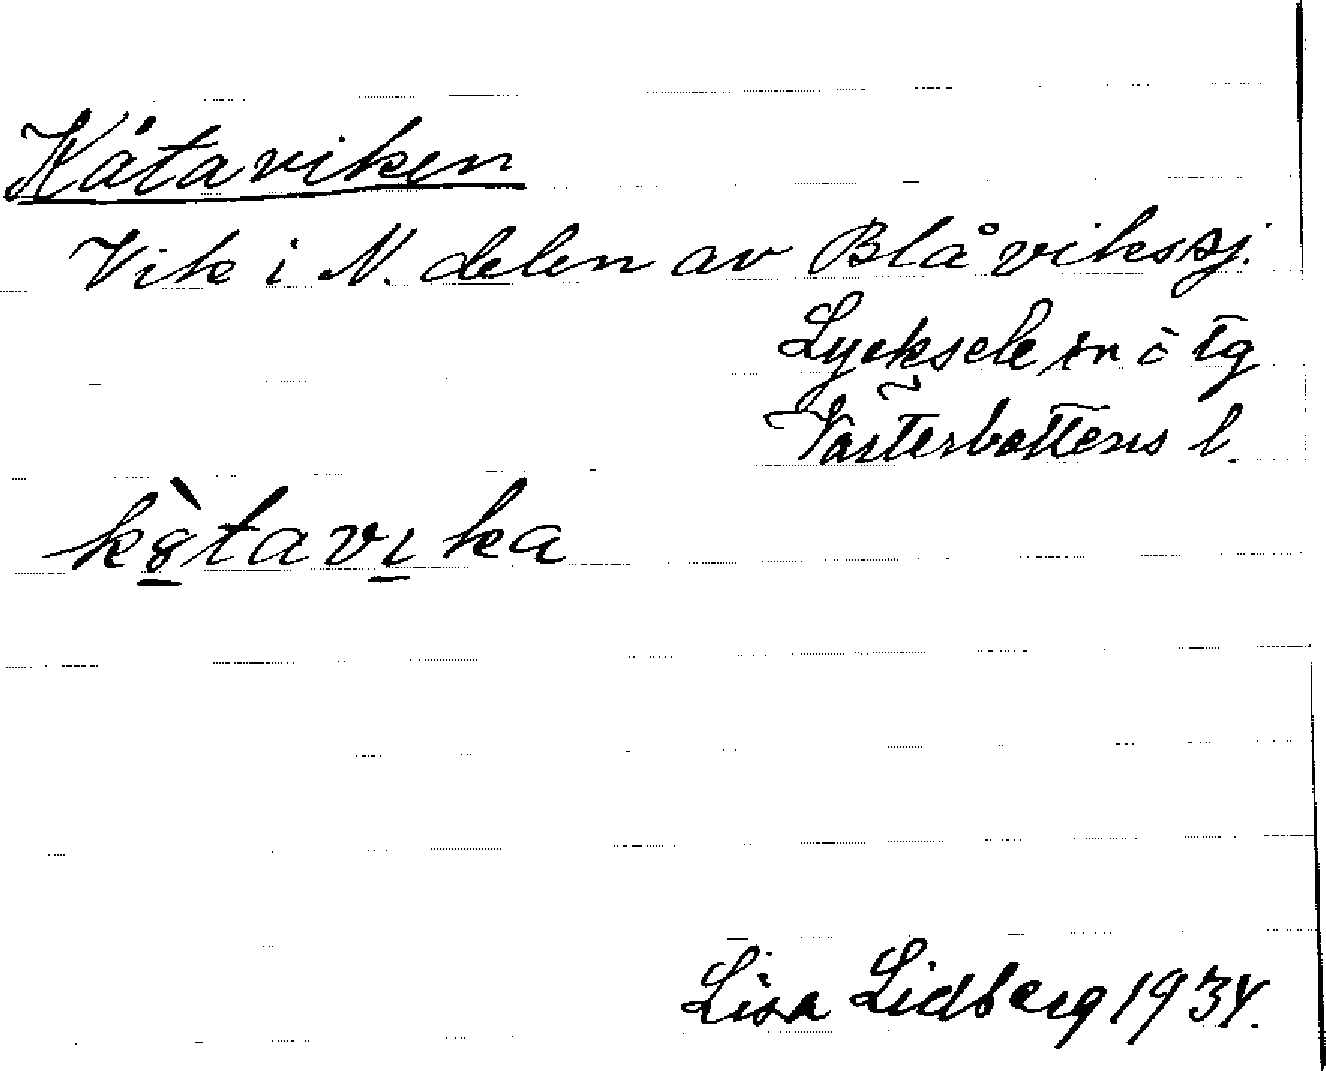 Kåtaviken
Vik i N. delen av Blåvikssj.
Lycksele sn o tg
Västerbottens l.
kò̱tavı̱ka
Lisa Lidberg 1934.